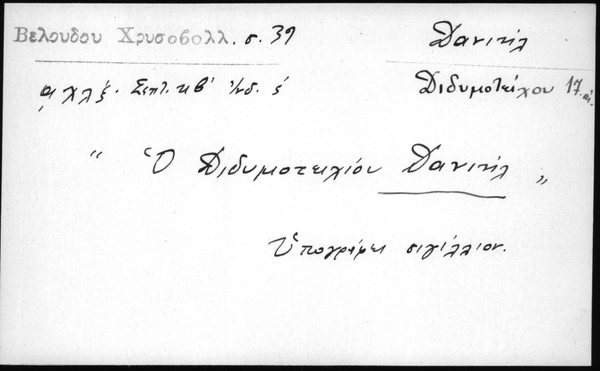 Βελουδου Χρυσοβολλ. σ. 39
Δανιήλ
͵αχλξ. Σεπτ. κβ' Ἰνδ. έ
Διδυμοτείχου 17. αἰ.
" Ὁ Διδυμοτειχίου Δανιήλ "
Ὑπογράφει σιγίλλιον.